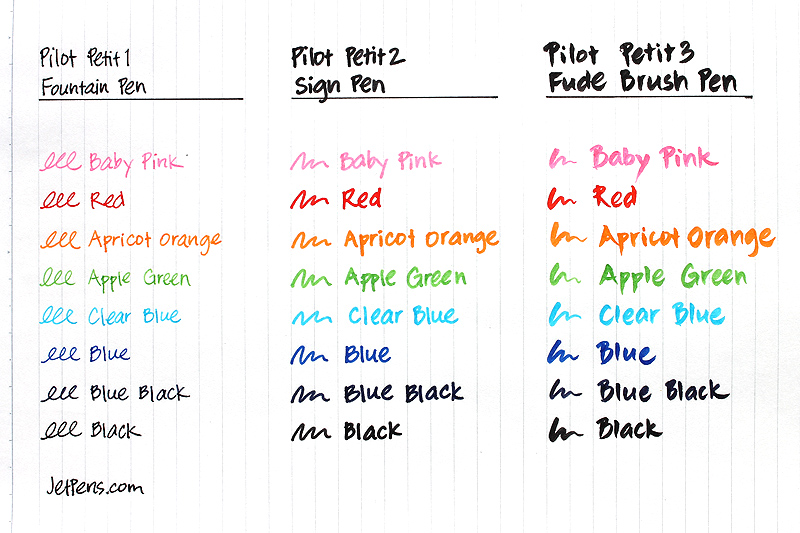 Pilot Petit1
Fountain Pen
Baby Pink
Red
Apricot Orange
Apple Green
Clear Blue
Blue
Blue Black
Black
JetPens.com
Pilot Petit2
Sign Pen
Baby Pink
Red
Apricot Orange
Apple Green
Clear Blue
Blue
Blue Black
Black
Pilot Petit3
Fude Brush Pen
Baby Pink
Red
Apricot Orange
Apple Green
Clear Blue
Blue
Blue Black
Black